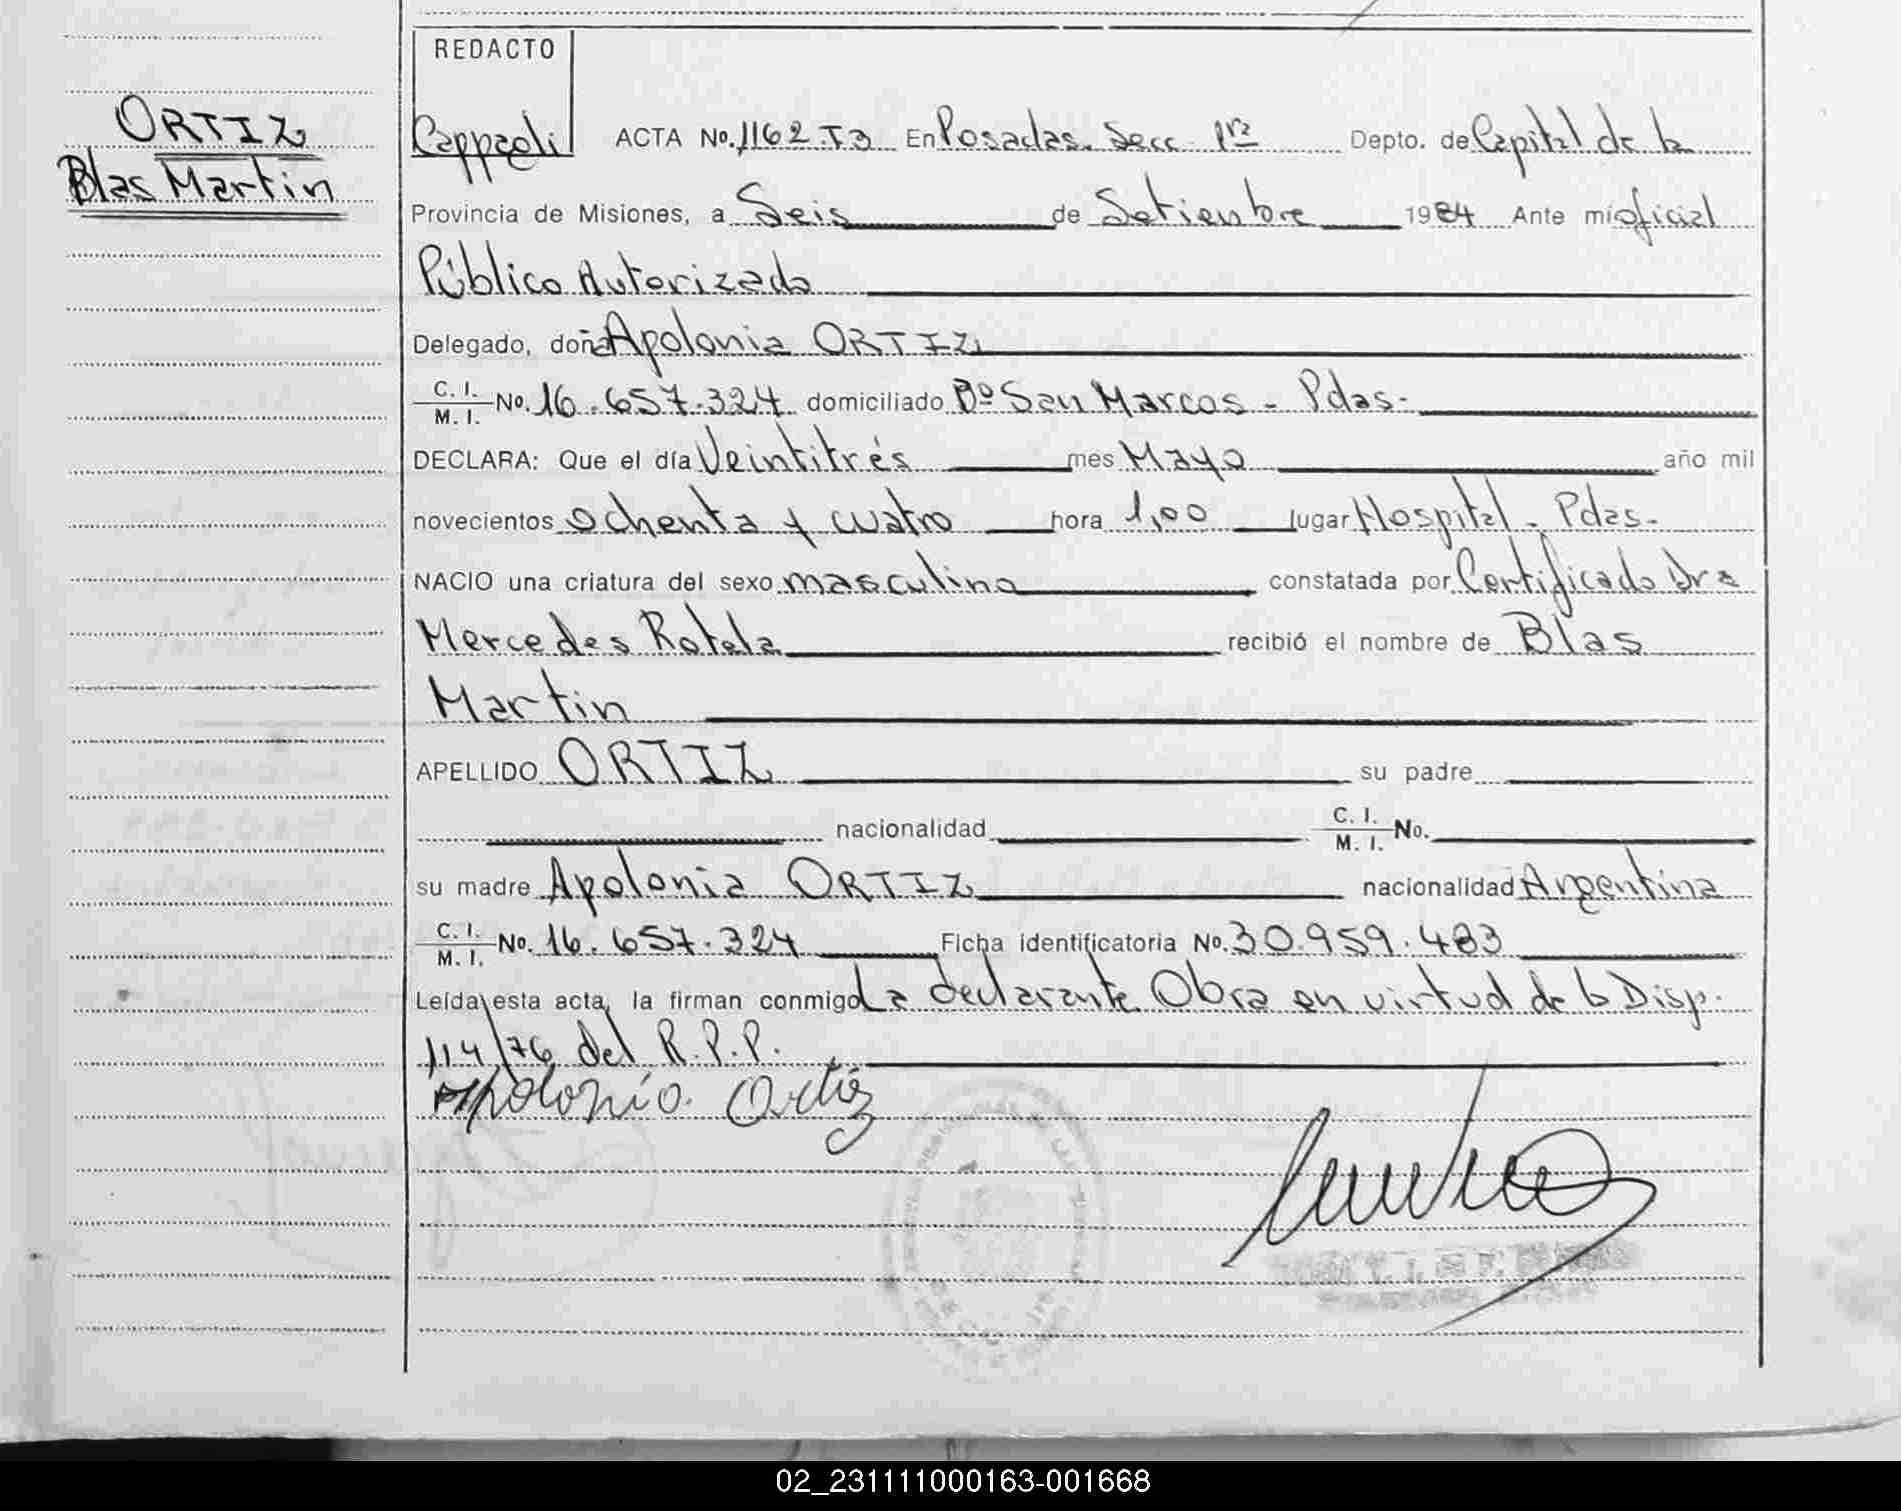 REDACTO
ORTIZ
Blas Martin
Cappeli ACTA No. 1162.T3 En Posadas. Secc. 1ra Depto. de Capital de la
Provincia de Misiones, a Seis de Setiembre 1984 Ante mí oficial
Público Autorizado
Delegado, doña Apolonia ORTIZ
C. I. / M. I. No. 16.657.324 domiciliado Bº San Marcos - Pdas-
DECLARA: Que el día Veintitrés mes Mayo año mil
novecientos ochenta y cuatro hora 1,00 lugar Hospital - Pdas-
NACIO una criatura del sexo masculino constatada por Certificado Dra
Mercedes Rotela recibió el nombre de Blas
Martin
APELLIDO ORTIZ su padre
nacionalidad C. I. / M. I. No.
su madre Apolonia ORTIZ nacionalidad Argentina
C. I. / M. I. No. 16.657.324 Ficha identificatoria No. 30.959.483
Leída esta acta, la firman conmigo La declarante Obra en virtud de la Disp.
114/76 del R.P.P.
Apolonia Ortiz
02_231111000163-001668